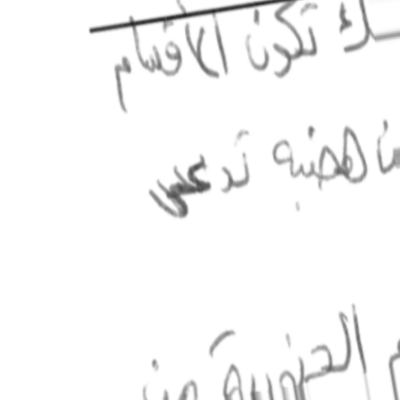 تكون الأقسام
هضبة تدعى
الجنوبية من